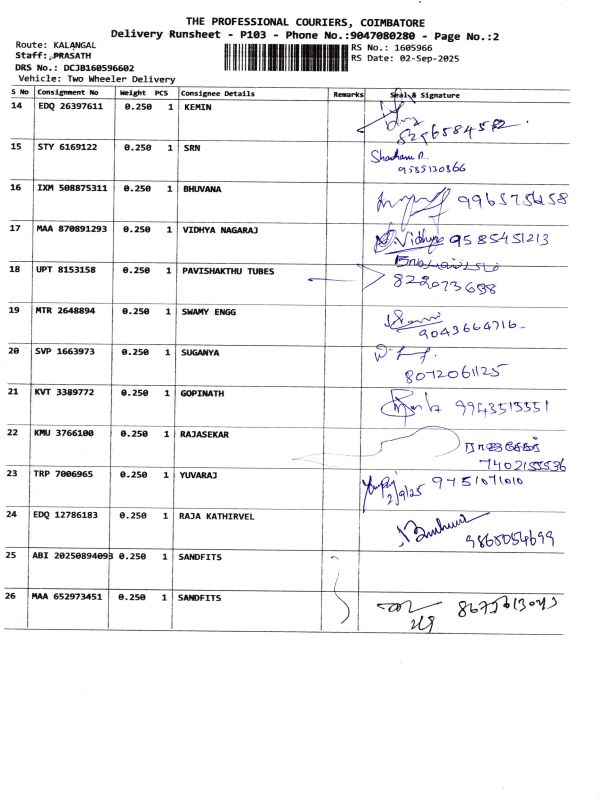 THE PROFESSIONAL COURIERS, COIMBATORE
Delivery Runsheet - P103 - Phone No.:9047080280 - Page No.:2
Route: KALANGAL
Staff: PRASATH
DRS No.: DCJB160596602
Vehicle: Two Wheeler Delivery
RS No.: 1605966
RS Date: 02-Sep-2025
S No Consignment No Weight PCS Consignee Details Remarks Seal & Signature
14 EDQ 26397611 0.250 1 KEMIN
15 STY 6169122 0.250 1 SRN
9585130866
16 IXM 508875311 0.250 1 BHUVANA
17 MAA 870891293 0.250 1 VIDHYA NAGARAJ Vidhya 9585451213
18 UPT 8153158 0.250 1 PAVISHAKTHU TUBES
822073698
19 MTR 2648894 0.250 1 SWAMY ENGG
9043664716
20 SVP 1663973 0.250 1 SUGANYA
8072061125
21 KVT 3389772 0.250 1 GOPINATH 9943513551
22 KMU 3766100 0.250 1 RAJASEKAR
7402155536
23 TRP 7006965 0.250 1 YUVARAJ 9751071010
2/9/25
24 EDQ 12786183 0.250 1 RAJA KATHIRVEL
9865054699
25 ABI 20250894093 0.250 1 SANDFITS
26 MAA 652973451 0.250 1 SANDFITS
2/9